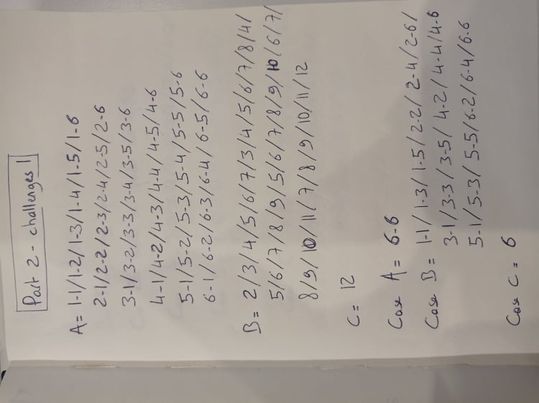 Part 2 - challenges 1
A= 1-1/1-2/1-3/1-4/1-5/1-6
2-1/2-2/2-3/2-4/2-5/2-6
3-1/3-2/3-3/3-4/3-5/3-6
4-1/4-2/4-3/4-4/4-5/4-6
5-1/5-2/5-3/5-4/5-5/5-6
6-1/6-2/6-3/6-4/6-5/6-6
B= 2/3/4/5/6/7/3/4/5/6/7/8/4/
5/6/7/8/9/5/6/7/8/9/10/6/7/
8/9/10/11/7/8/9/10/11/12
C= 12
Case A = 6-6
Case B = 1-1/1-3/1-5/2-2/2-4/2-6/
3-1/3-3/3-5/4-2/4-4/4-6
5-1/5-3/5-5/6-2/6-4/6-6
Case C = 6